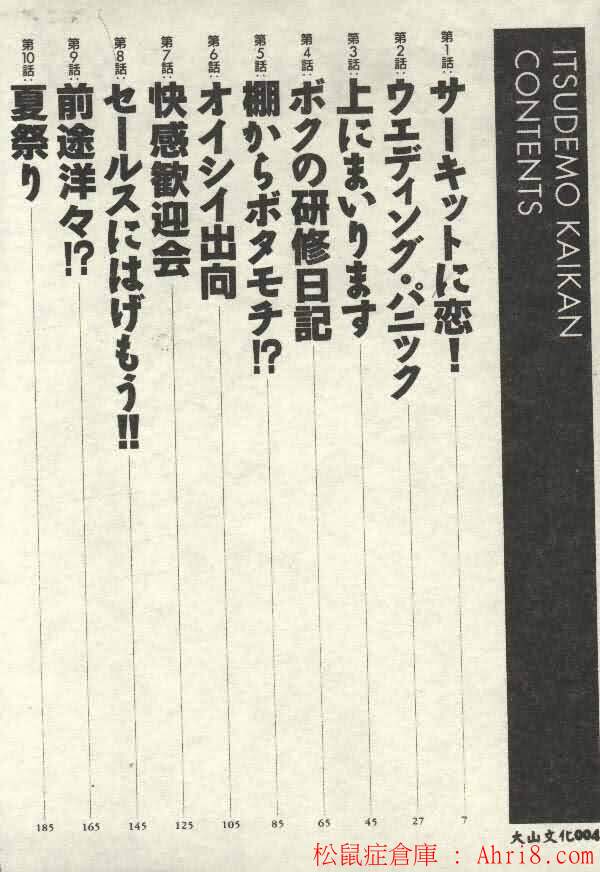 ITSUDEMO KAIKAN
CONTENTS
第1話:サーキットに恋! 7
第2話:ウエディング・パニック 27
第3話:上にまいります 45
第4話:ボクの研修日記 65
第5話:棚からボタモチ!? 85
第6話:オイシイ出向 105
第7話:快感歓迎会 125
第8話:セールスにはげもう!! 145
第9話:前途洋々!? 165
第10話:夏祭り 185
大山文化004
松鼠症倉庫 : Ahri8.com